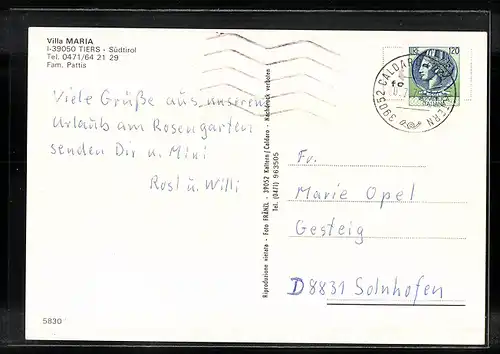 Villa MARIA
I-39050 TIERS - Südtirol
Tel. 0471/64 21 29
Fam. Pattis
Viele Grüße aus unserem
Urlaub am Rosengarten
senden Dir u. Mini
Rosl u. Willi
5830
Riproduzione vietata - Foto FRÄNZL - 39052 Kaltern/Caldaro - Nachdruck verboten
Tel. (0471) 963505
120
39052 CALDARO
Fr.
Marie Opel
Gesteig
D 8831 Solnhofen